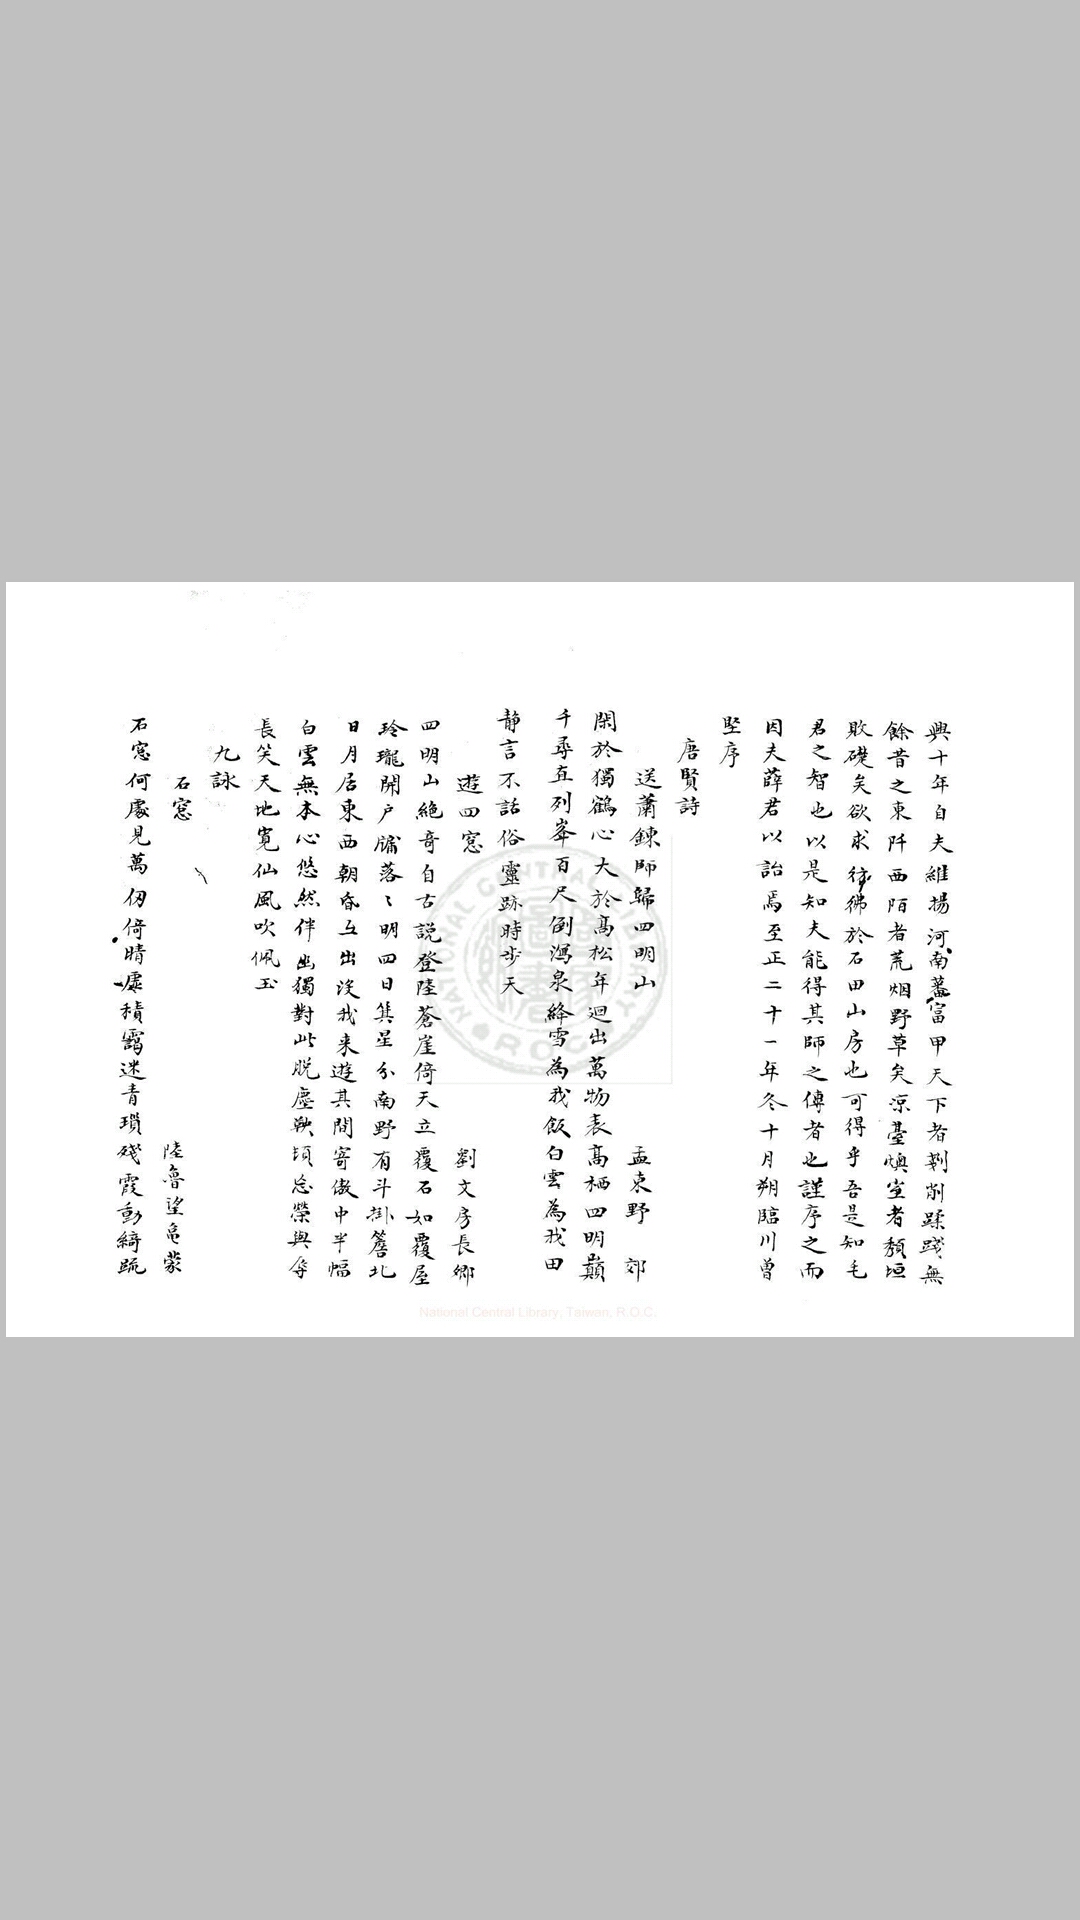 興十年自夫維揚河南蕃富甲天下者剗削蹂踐無
餘昔之東阡西陌者荒烟野草矣涼臺燠室者頹垣
敗礎矣欲求彷彿於石田山房也可得乎吾是知毛
君之智也以是知夫能得其師之傳者也謹序之而
因夫薛君以詒焉至正二十一年冬十月朔臨川曾
堅序
唐賢詩
送蕭鍊師歸四明山 孟東野 郊
閑於獨鶴心大於高松年迥出萬物表高栖四明巔
千尋直列峯百尺倒瀉泉絳雪為我飯白雲為我田
静言不話俗靈跡時步天
遊四窓 劉文房長卿
四明山絶奇自古説登陸蒼崖倚天立覆石如覆屋
玲瓏開户牖落〻明四目箕星分南野有斗掛簷北
日月居東西朝昏互出没我来遊其間寄傲巾半幅
白雲無本心悠然伴幽獨對此脱塵鞅頓忘榮與辱
長笑天地寛仙風吹佩玉
九詠
石窓 陸魯望龜蒙
石窓何處見萬仞倚晴虚積靄迷青瑣殘霞動綺疏
NATIONAL CENTRAL LIBRARY R.O.C.
National Central Library, Taiwan, R.O.C.